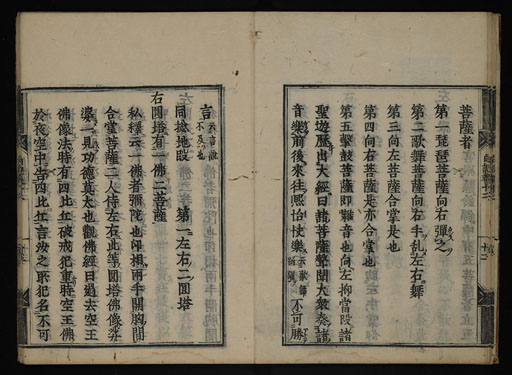 菩薩者
第一琵琶菩薩向右彈之
第二歌舞菩薩向右手乱左右舞
第三向左菩薩合掌是也
第四向右菩薩是亦合掌也
第五擊鼓菩薩即雜音也向左抑當段諸
聖遊歷出大經曰諸菩薩擎聞大衆奏諸
音樂前後來往熙怡快樂 不可勝
言
同捻地段 第一左右二圓塔
右圓塔有一佛二菩薩
私釋云一佛者彌陀也印相兩手開胸間
合掌菩薩二人侍左右此等圓塔佛像
婆一見功德莫太也觀佛經曰過去空王
佛像法時有四比丘破戒犯重時空王佛
於夜空中告四比丘言汝之所犯名不可